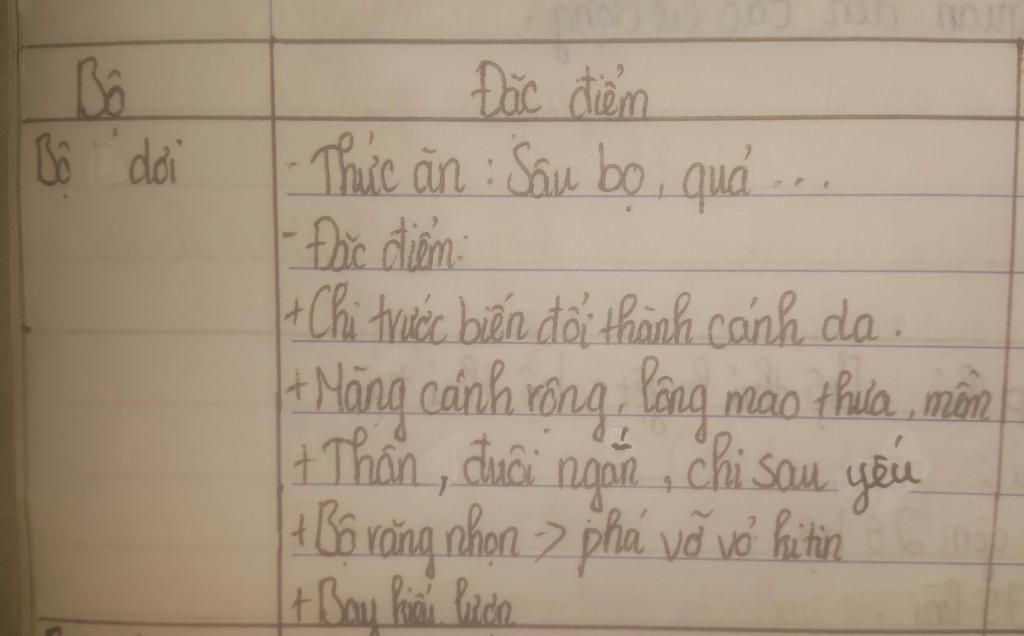 Bộ Đặc điểm
Bộ dơi - Thức ăn : Sâu bọ, quả ...
- Đặc điểm:
+ Chi trước biến đổi thành cánh da.
+ Màng cánh rộng, lông mao thưa, mềm
+ Thân, đuôi ngắn, chi sau yếu
+ Bộ răng nhọn -> phá vỡ vỏ kitin
+ Bay kiểu lượn